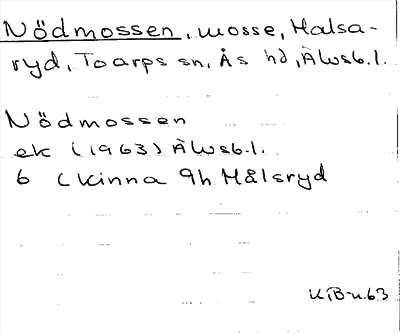 Nödmossen, mosse, Halsa-
ryd, Toarps sn, Ås hd, Älvsb.l.
Nödmossen
ek (1963) Älvsb.l.
6 Kinna 9h Målsryd